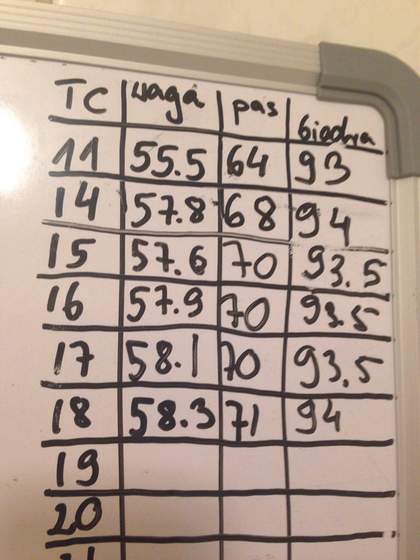 TC waga pas biodra
11 55.5 64 93
14 57.8 68 94
15 57.6 70 93.5
16 57.9 70 93.5
17 58.1 70 93.5
18 58.3 71 94
19
20